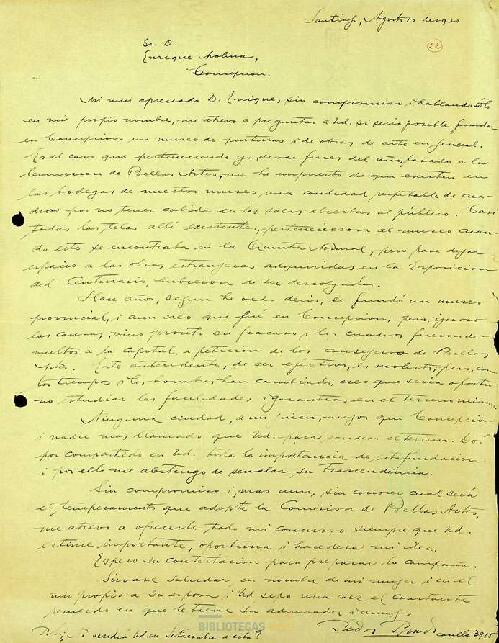 Santiago, Agosto 10 de 1920
(22)
Sr. D.
Enrique Molina,
Concepcion.
Mi mui apreciado D. Enrique, sin comprometer, i hablandole
en mi propio nombre, me atrevo a preguntar a Ud. si sería posible fundar
en Concepcion un museo de pinturas i de obras de arte en jeneral.
Es el caso que perteneciendo yo, desde fines del año pasado a la
Comision de Bellas Artes, me he impuesto de que existen en
las bodegas de nuestro museo, una cantidad respetable de cua-
dros que no tienen cabida en las salas abiertas al público. Casi
todas las telas allí existentes, pertenecieron al museo cuan-
do éste se encontraba en la Quinta Normal, pero para dejar
espacio a las obras estranjeras adquiridas en la Esposicion
del Centenario, hubieron de ser
Hace años, segun he oido decir, se fundó un museo
provincial, i aun creo que fué en Concepcion, pero, ignoro
las causas, vino pronto su fracaso i los cuadros fueron de-
vueltos a la capital, a peticion de los consejeros de Bellas
Artes. Este antecedente, de ser efectivo, es molesto, pero, con
los tiempos i los hombres han cambiado, creo que sería oportu-
no estudiar las facilidades
Ninguna ciudad, a mi juicio, mejor que Concepcion
i nadie mas llamado que Ud. para
por compartida en Ud. toda la importancia de esta fundacion
i por ello me abstengo de señalar su trascendencia.
Sin compromiso i, mas aun, sin conocer cual será
el temperamento que adopte la Comision de Bellas Artes,
me atrevo a ofrecerle todo mi concurso siempre que Ud.
estime importante, oportuna i hacedera mi idea.
Espero su contestacion para preparar la campaña.
Sírvase saludar, en nombre de mi mujer i en el
mio propio a su esposa i Ud. sepa una vez el constante
recuerdo en que le tiene su admirador i amigo.
Pedro Prado
BIBLIOTECAS